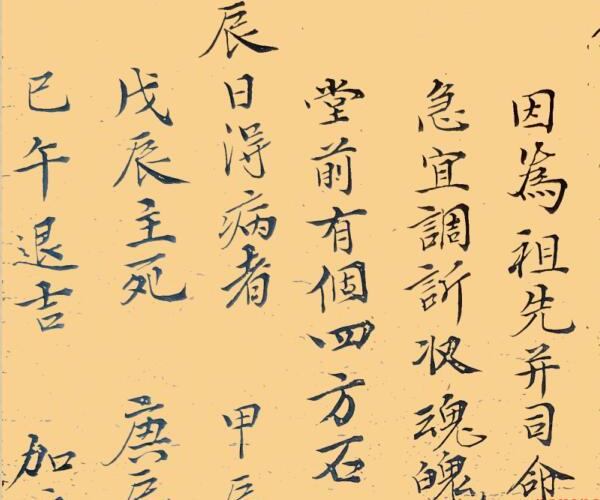 因為祖先并司命
急宜調訴状魂魄
堂前有個四方石
辰日淂病者 甲辰
戊辰主死 庚辰
巳午退吉 加